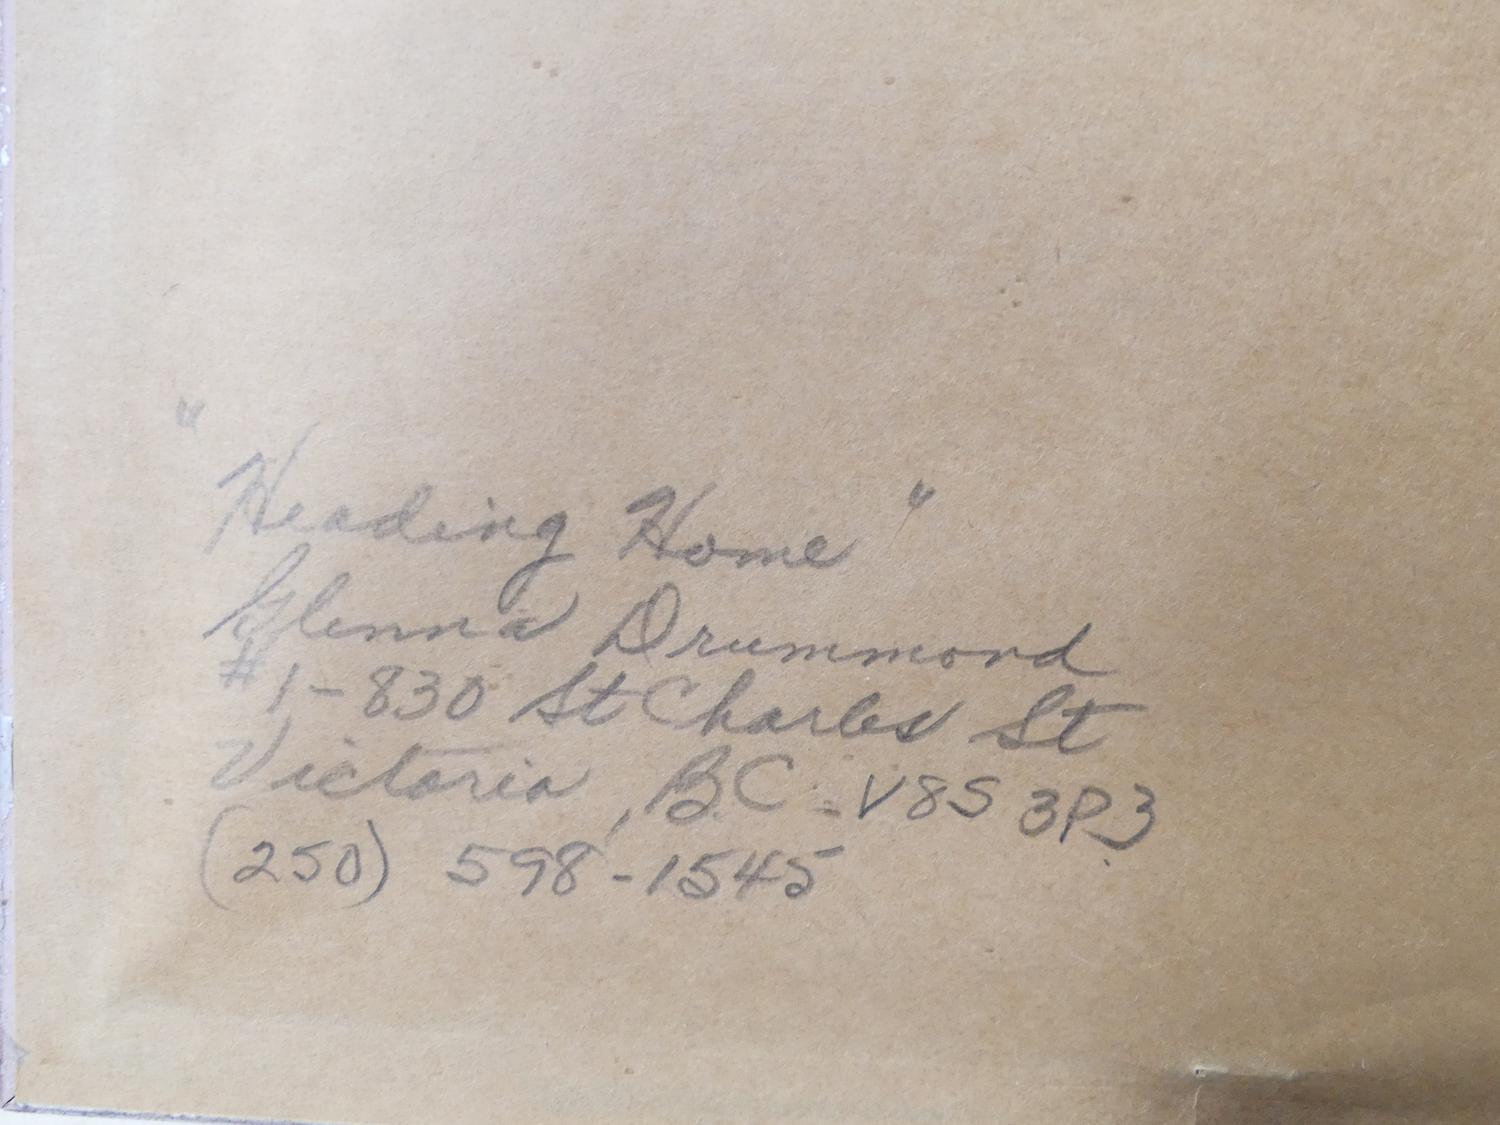 "Heading Home"
Glenna Drummond
#1-830 St Charles St
Victoria, B.C. V8S 3P3
(250) 598-1545